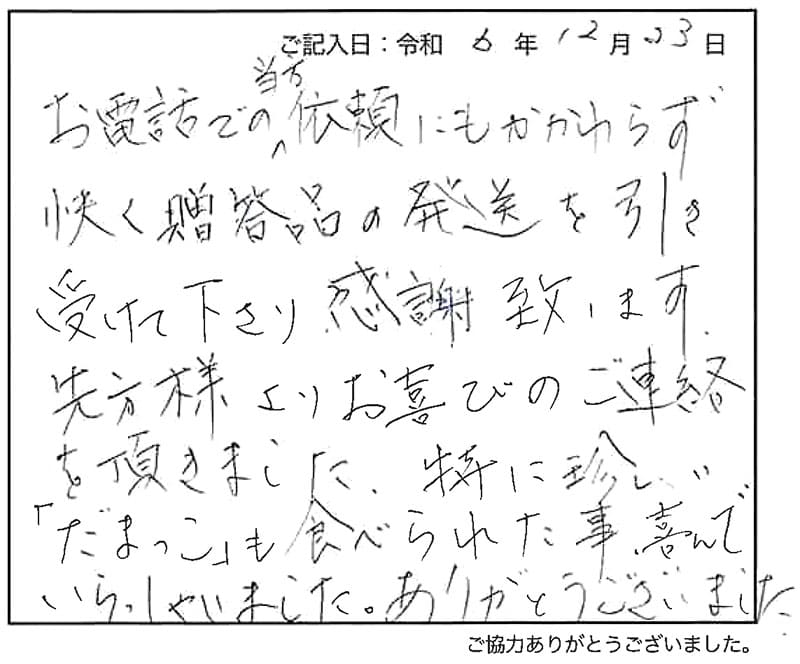 ご記入日：令和 6 年 12 月 23 日
お電話での当方依頼にもかかわらず
快く贈答品の発送を引き
受けて下さり感謝致します。
先方様よりお喜びのご連絡
を頂きました。特に珍しい
「だまっこ」も食べられた事、喜んで
いらっしゃいました。ありがとうございました
ご協力ありがとうございました。